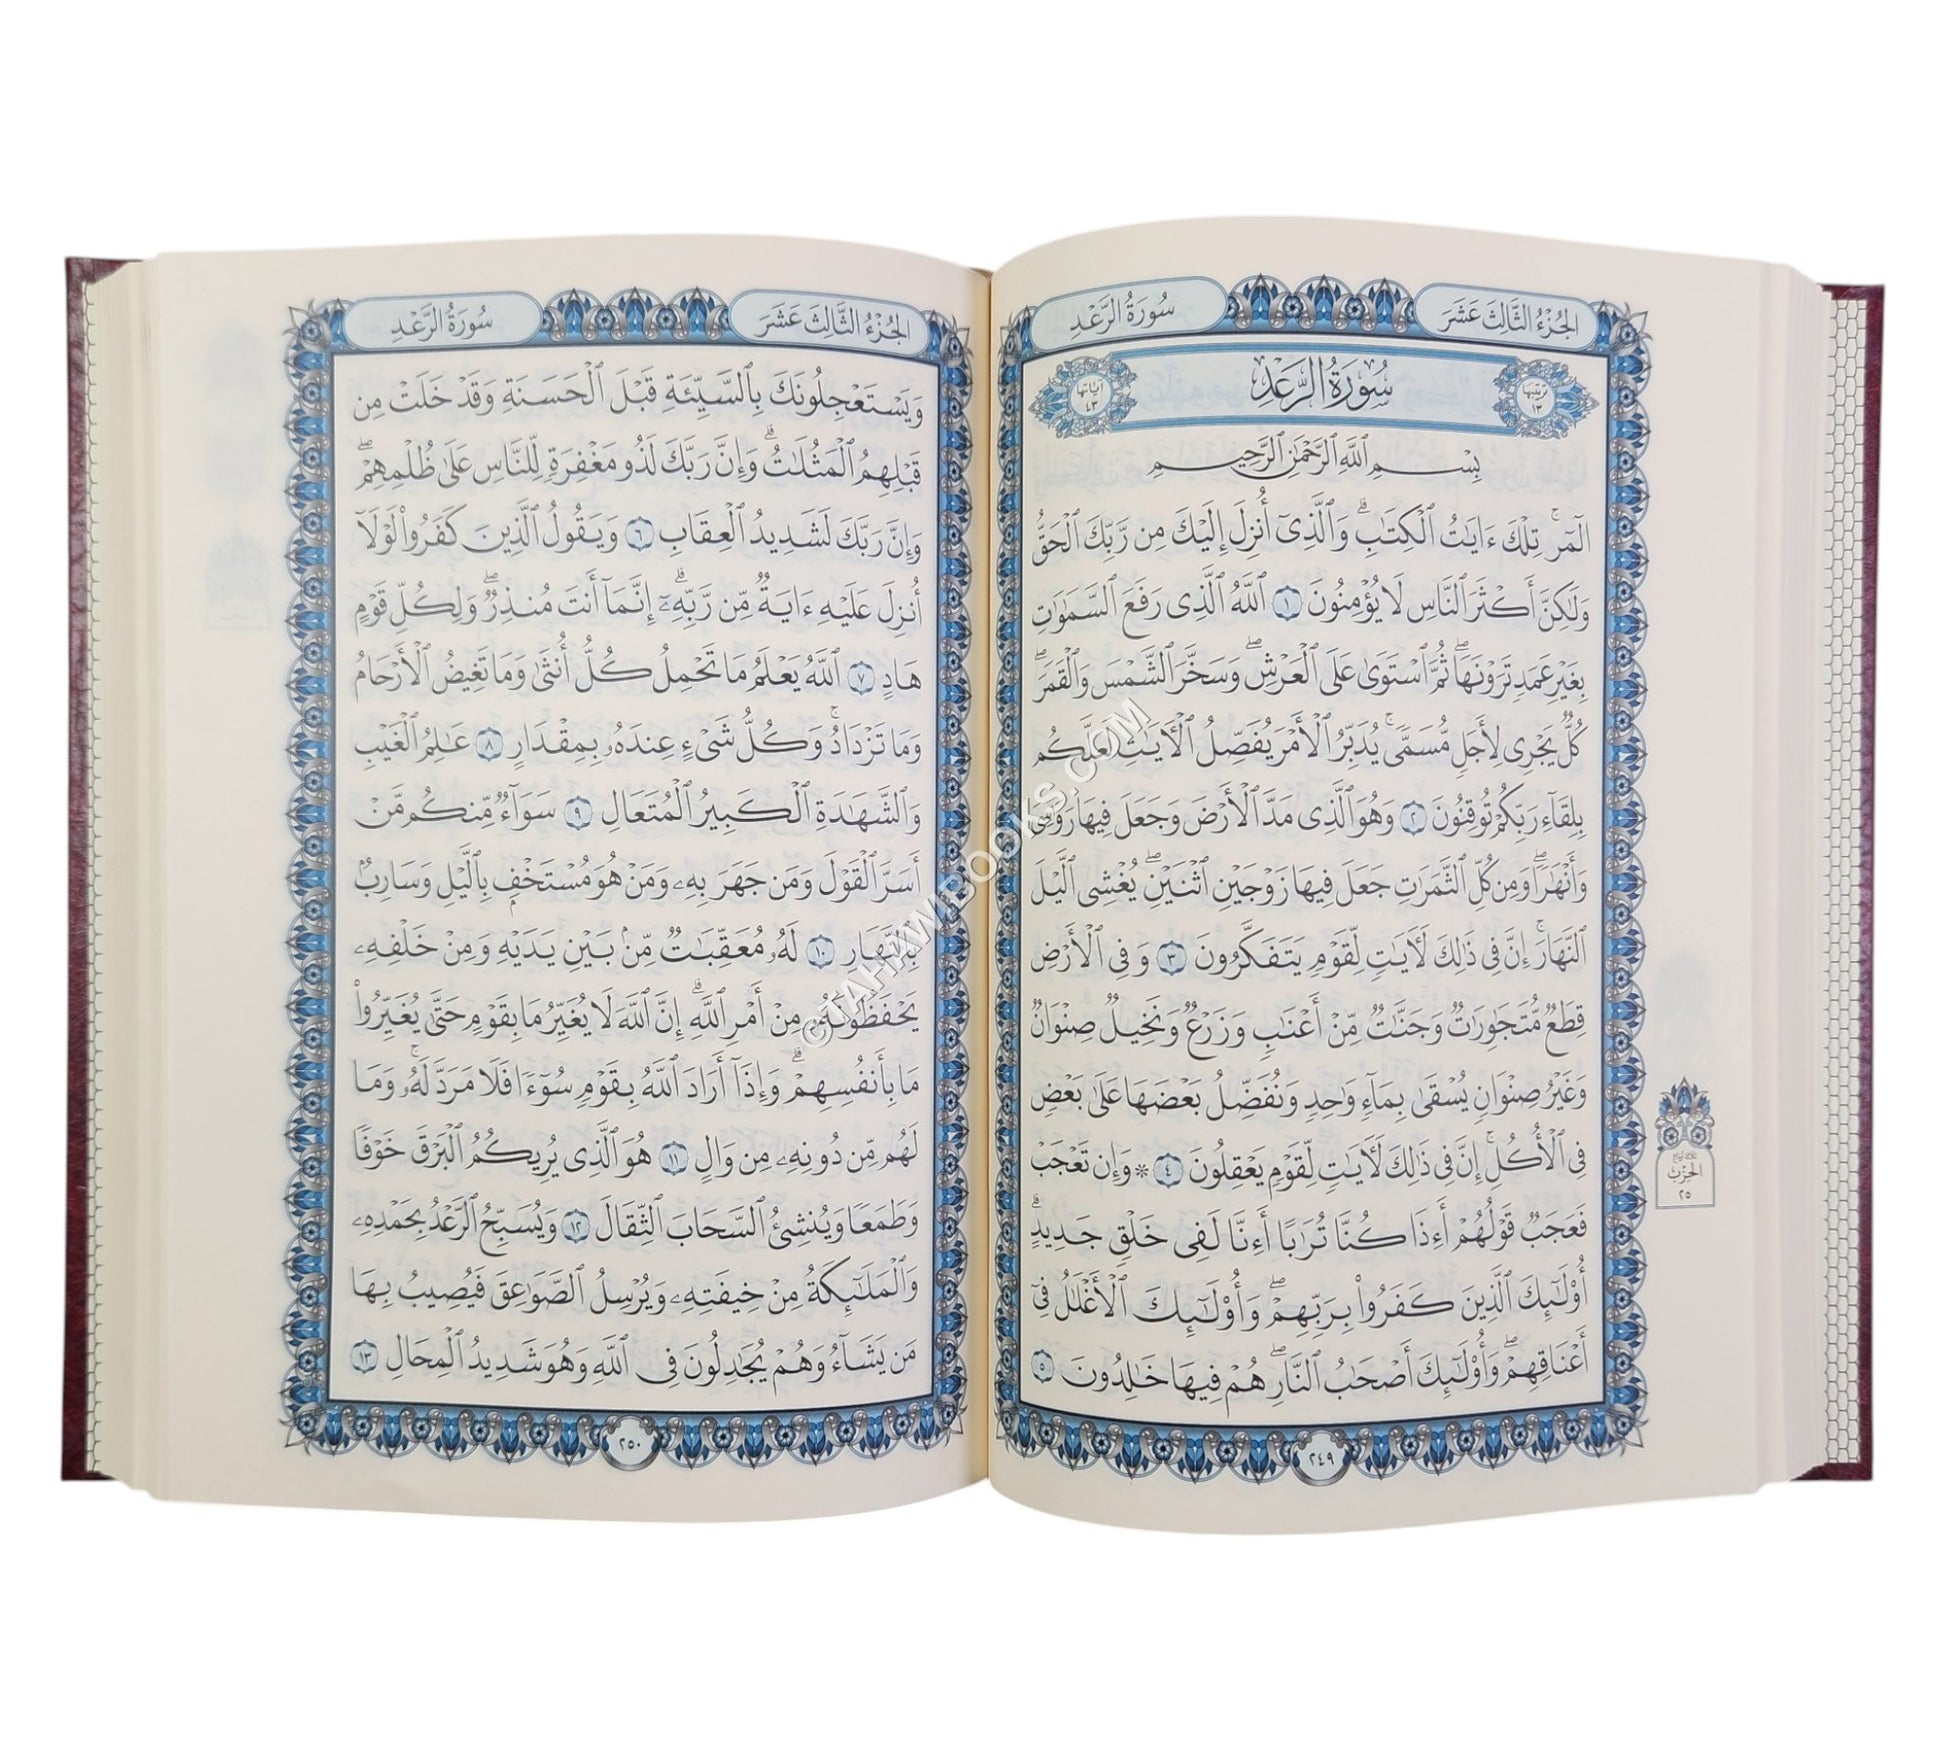 الجزء الثالث عشر
سورة الرعد
ترتيبها ١٣
سُورَةُ الرَّعْدِ
آياتها ٤٣
بِسْمِ ٱللَّهِ ٱلرَّحْمَٰنِ ٱلرَّحِيمِ
الٓمٓرۚ تِلْكَ ءَايَٰتُ ٱلْكِتَٰبِۗ وَٱلَّذِىٓ أُنزِلَ إِلَيْكَ مِن رَّبِّكَ ٱلْحَقُّ
وَلَٰكِنَّ أَكْثَرَ ٱلنَّاسِ لَا يُؤْمِنُونَ ١ ٱللَّهُ ٱلَّذِى رَفَعَ ٱلسَّمَٰوَٰتِ
بِغَيْرِ عَمَدٍ تَرَوْنَهَاۖ ثُمَّ ٱسْتَوَىٰ عَلَى ٱلْعَرْشِۖ وَسَخَّرَ ٱلشَّمْسَ وَٱلْقَمَرَۖ
كُلٌّ يَجْرِى لِأَجَلٍ مُّسَمًّىۚ يُدَبِّرُ ٱلْأَمْرَ يُفَصِّلُ ٱلْءَايَٰتِ لَعَلَّكُم
بِلِقَآءِ رَبِّكُمْ تُوقِنُونَ ٢ وَهُوَ ٱلَّذِى مَدَّ ٱلْأَرْضَ وَجَعَلَ فِيهَا رَوَٰسِىَ
وَأَنْهَٰرًاۖ وَمِن كُلِّ ٱلثَّمَرَٰتِ جَعَلَ فِيهَا زَوْجَيْنِ ٱثْنَيْنِۖ يُغْشِى ٱلَّيْلَ
ٱلنَّهَارَۚ إِنَّ فِى ذَٰلِكَ لَءَايَٰتٍ لِّقَوْمٍ يَتَفَكَّرُونَ ٣ وَفِى ٱلْأَرْضِ
قِطَعٌ مُّتَجَٰوِرَٰتٌ وَجَنَّٰتٌ مِّنْ أَعْنَٰبٍ وَزَرْعٌ وَنَخِيلٌ صِنْوَانٌ
وَغَيْرُ صِنْوَانٍ يُسْقَىٰ بِمَآءٍ وَٰحِدٍ وَنُفَضِّلُ بَعْضَهَا عَلَىٰ بَعْضٍ
فِى ٱلْأُكُلِۚ إِنَّ فِى ذَٰلِكَ لَءَايَٰتٍ لِّقَوْمٍ يَعْقِلُونَ ٤ * وَإِن تَعْجَبْ
فَعَجَبٌ قَوْلُهُمْ أَءِذَا كُنَّا تُرَٰبًا أَءِنَّا لَفِى خَلْقٍ جَدِيدٍۗ
أُو۟لَٰٓئِكَ ٱلَّذِينَ كَفَرُوا۟ بِرَبِّهِمْۖ وَأُو۟لَٰٓئِكَ ٱلْأَغْلَٰلُ فِىٓ
أَعْنَاقِهِمْۖ وَأُو۟لَٰٓئِكَ أَصْحَٰبُ ٱلنَّارِۖ هُمْ فِيهَا خَٰلِدُونَ ٥
الحزب
٢٥
٢٤٩
الجزء الثالث عشر
سورة الرعد
وَيَسْتَعْجِلُونَكَ بِٱلسَّيِّئَةِ قَبْلَ ٱلْحَسَنَةِ وَقَدْ خَلَتْ مِن
قَبْلِهِمُ ٱلْمَثُلَٰتُۗ وَإِنَّ رَبَّكَ لَذُو مَغْفِرَةٍ لِّلنَّاسِ عَلَىٰ ظُلْمِهِمْۖ
وَإِنَّ رَبَّكَ لَشَدِيدُ ٱلْعِقَابِ ٦ وَيَقُولُ ٱلَّذِينَ كَفَرُوا۟ لَوْلَآ
أُنزِلَ عَلَيْهِ ءَايَةٌ مِّن رَّبِّهِۦٓۗ إِنَّمَآ أَنتَ مُنذِرٌۖ وَلِكُلِّ قَوْمٍ
هَادٍ ٧ ٱللَّهُ يَعْلَمُ مَا تَحْمِلُ كُلُّ أُنثَىٰ وَمَا تَغِيضُ ٱلْأَرْحَامُ
وَمَا تَزْدَادُۚ وَكُلُّ شَىْءٍ عِندَهُۥ بِمِقْدَارٍ ٨ عَٰلِمُ ٱلْغَيْبِ
وَٱلشَّهَٰدَةِ ٱلْكَبِيرُ ٱلْمُتَعَالِ ٩ سَوَآءٌ مِّنكُم مَّنْ
أَسَرَّ ٱلْقَوْلَ وَمَن جَهَرَ بِهِۦ وَمَنْ هُوَ مُسْتَخْفٍۭ بِٱلَّيْلِ وَسَارِبٌۢ
بِٱلنَّهَارِ ١٠ لَهُۥ مُعَقِّبَٰتٌ مِّنۢ بَيْنِ يَدَيْهِ وَمِنْ خَلْفِهِۦ
يَحْفَظُونَهُۥ مِنْ أَمْرِ ٱللَّهِۗ إِنَّ ٱللَّهَ لَا يُغَيِّرُ مَا بِقَوْمٍ حَتَّىٰ يُغَيِّرُوا۟
مَا بِأَنفُسِهِمْۗ وَإِذَآ أَرَادَ ٱللَّهُ بِقَوْمٍ سُوٓءًا فَلَا مَرَدَّ لَهُۥۚ وَمَا
لَهُم مِّن دُونِهِۦ مِن وَالٍ ١١ هُوَ ٱلَّذِى يُرِيكُمُ ٱلْبَرْقَ خَوْفًا
وَطَمَعًا وَيُنشِئُ ٱلسَّحَابَ ٱلثِّقَالَ ١٢ وَيُسَبِّحُ ٱلرَّعْدُ بِحَمْدِهِۦ
وَٱلْمَلَٰٓئِكَةُ مِنْ خِيفَتِهِۦ وَيُرْسِلُ ٱلصَّوَٰعِقَ فَيُصِيبُ بِهَا
مَن يَشَآءُ وَهُمْ يُجَٰدِلُونَ فِى ٱللَّهِ وَهُوَ شَدِيدُ ٱلْمِحَالِ ١٣
٢٥٠
©TAHAWIBOOKS.COM